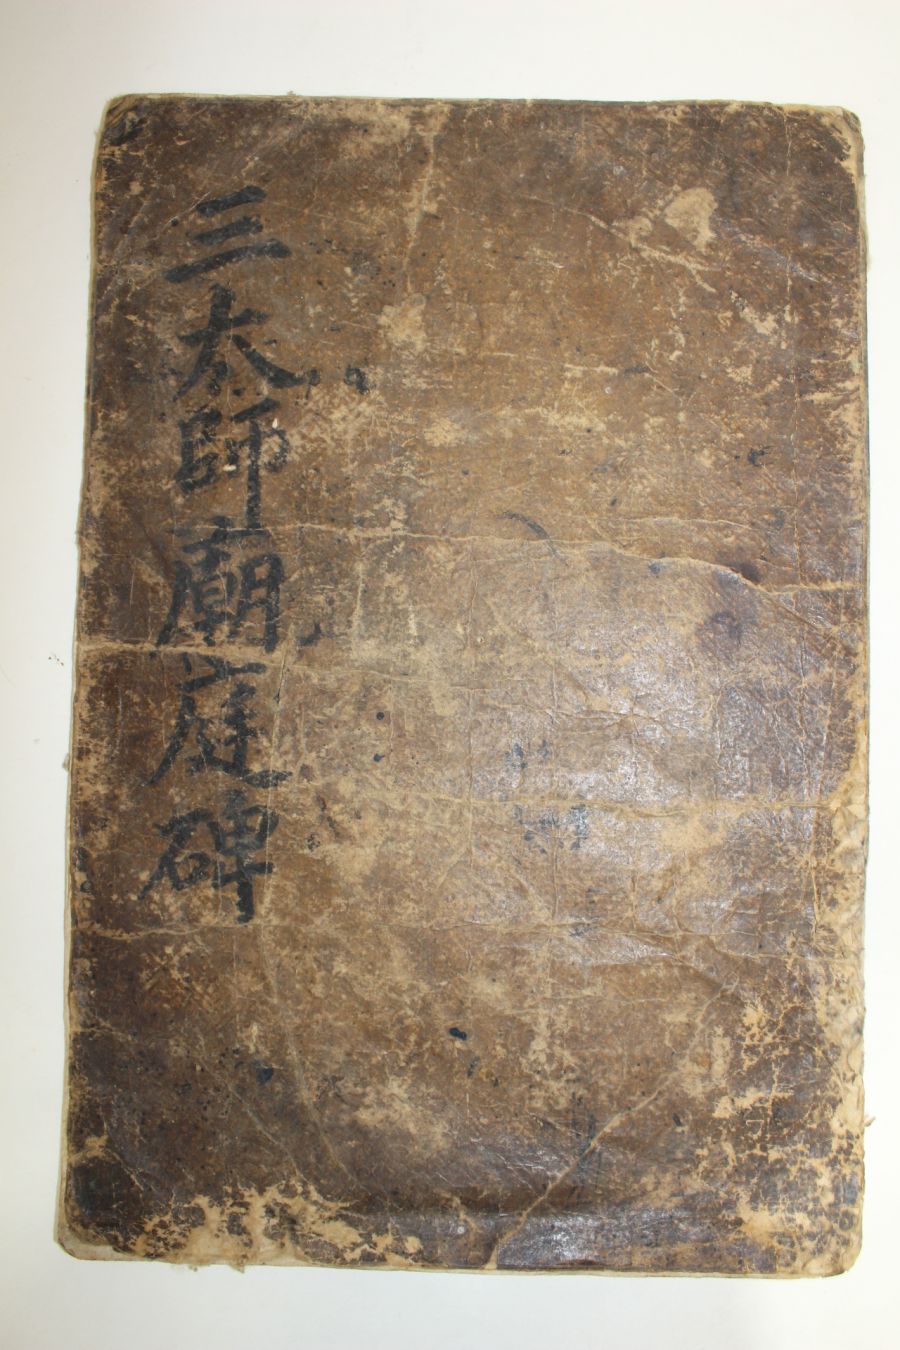 三太師廟庭碑